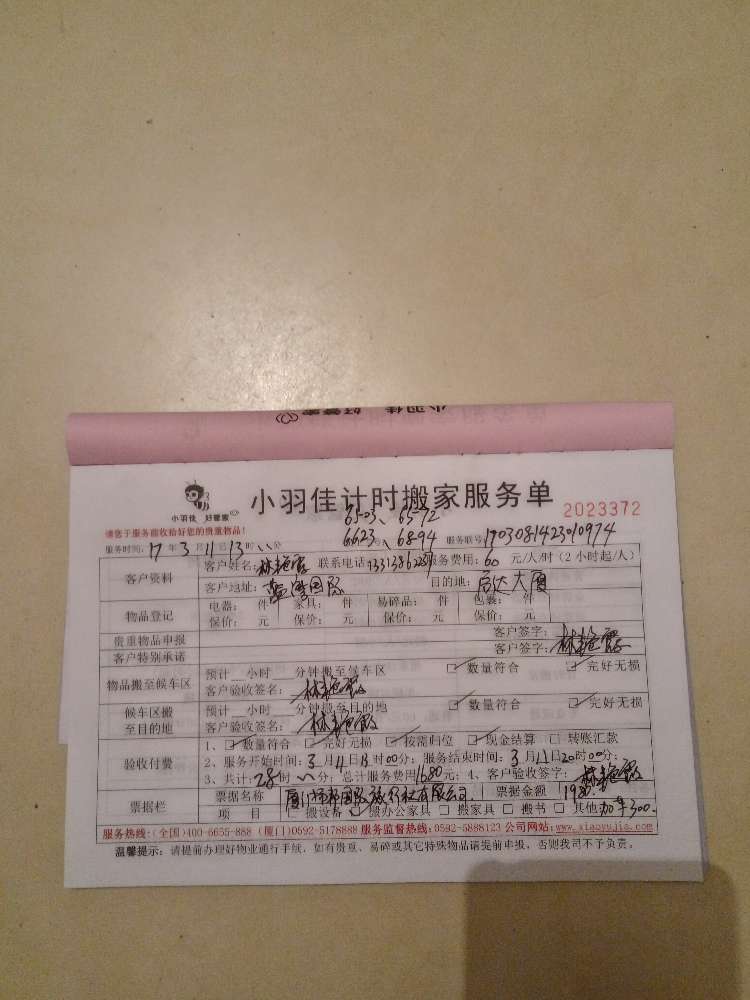 小羽佳 好管家
小羽佳 好管家
小羽佳计时搬家服务单
2023372
请您于服务前收拾好您的贵重物品！
6503、6572
6623、6894
服务联号：1703081423010974
服务时间：17年3月11日13时
客户资料
客户姓名： 联系电话： 服务费用：60 元/人/时（2小时起/人）
客户地址： 国际 目的地： 大厦
物品登记
电器： 件 家具： 件 易碎品： 件 包裹： 件
保价： 元 保价： 元 保价： 元 保价： 元
贵重物品申报 客户签字：
客户特别承诺 客户签字：
物品搬至候车区
预计__小时__分钟搬至候车区 ☑数量符合 ☑完好无损
客户验收签名：
候车区搬至目的地
预计__小时__分钟搬至目的地 ☑数量符合 ☑完好无损
客户验收签名：
验收付费
1、☑数量符合 ☑完好无损 ☑按需归位 ☑现金结算 □转账汇款
2、服务开始时间：3月11日13时00分；服务结束时间：3月11日20时00分；
3、共计：28时 分；总计服务费用1680元；4、客户验收签字：
票据栏
票据名称 厦门 国际旅行社有限公司 票据金额 1980
项 目 □搬设备 ☑搬办公家具 □搬家具 □搬书 □其他加车300.
服务热线：（全国）400-6655-888（厦门）0592-5178888 服务监督热线：0592-5888123 公司网站：www.xiaoyujia.com
温馨提示：请提前办理好物业通行手续，如有贵重、易碎或其它特殊物品请提前申报，否则我司不予负责。